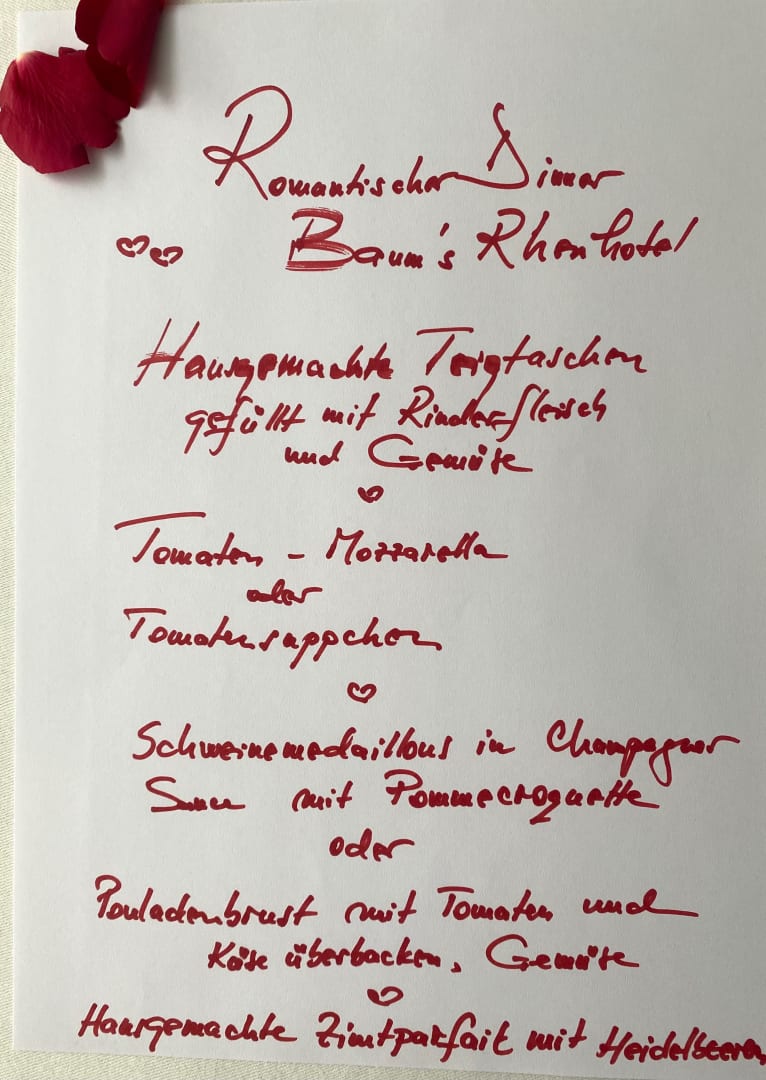 Romantischer Dinner
Baum's Rheinhotel
Hausgemachte Teigtaschen
gefüllt mit Rinderfleisch
und Gemüse
Tomaten - Mozzarella
oder
Tomatensüppchen
Schweinemedaillons in Champagner
mit Pommecroquette
oder
Pouladenbrust mit Tomaten und
Käse überbacken, Gemüse
Hausgemachte Zimtparfait mit Heidelbeeren